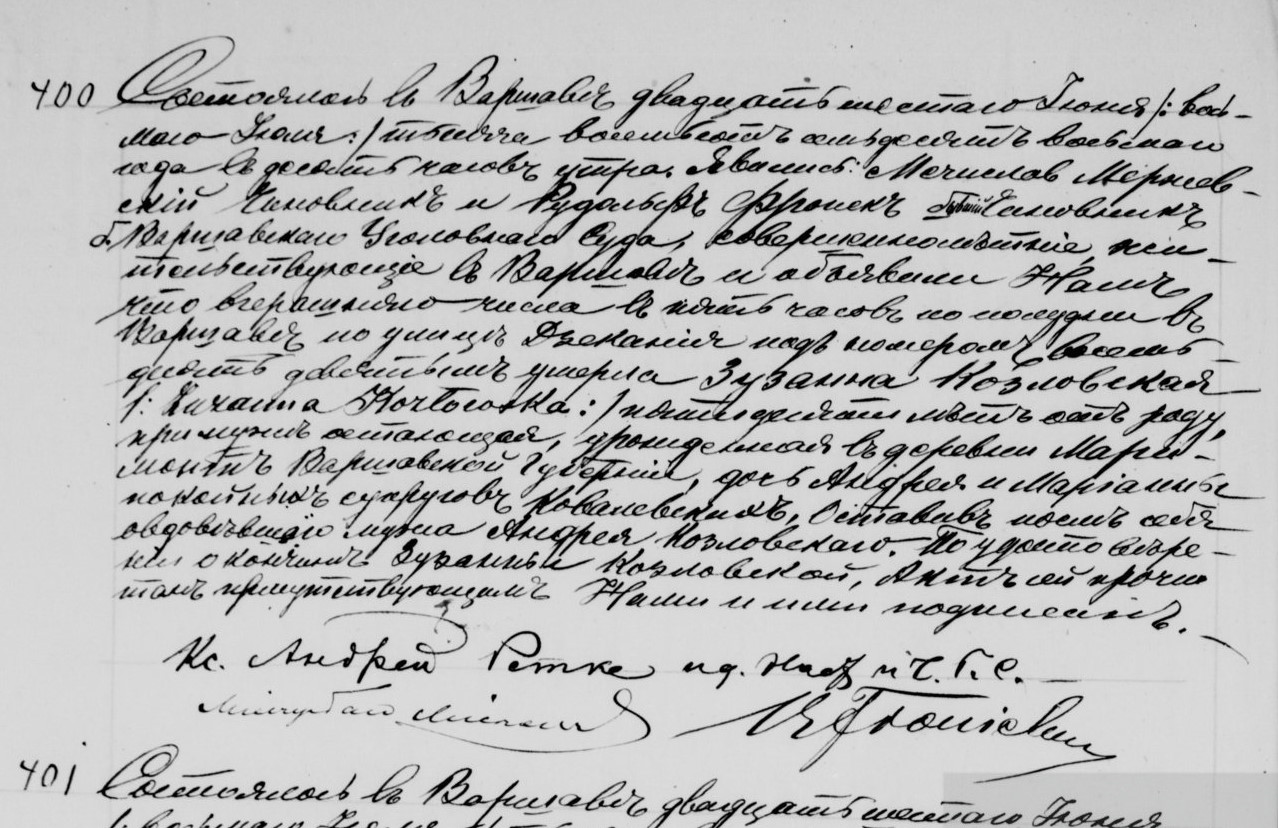 400 Состоялось въ Варшавѣ двадцать шестаго Іюня /: вось-
маго Іюля :/ тысяча восемьсотъ семьдесятъ восьмаго
года въ десять часовъ утра. Явились: Мечислав
скій Чиновникъ и Рудольфъ бывшій Чиновникъ
б. Варшавскаго Уголовнаго Суда, совершеннолѣтніе, жи-
тельствующіе въ Варшавѣ и объявили Намъ,
что вчерашняго числа въ пять часовъ по полудни въ
Варшавѣ по улицѣ Дзеканія подъ номеромъ восемь-
десятъ девятымъ умерла Зузанна Козловская
/: Zuzanna Kozłowska :/ пятидесяти лѣтъ отъ роду,
при мужѣ остающая, урожденная въ деревни Мары-
монтъ Варшавской Губерніи, дочь Андрея и Маріанны
покойныхъ супруговъ Ковалевскихъ. Оставивъ послѣ себя
овдовѣвшаго мужа Андрея Козловскаго. По удостовѣре-
ніи о кончинѣ Зузанны Козловской, Актъ сей прочи-
танъ присутствующимъ Нами и ими подписанъ.
Кс. Андрей Ретке и. Г. С.
401 Состоялось въ Варшавѣ двадцать шестаго Іюня
/: восьмаго Іюля